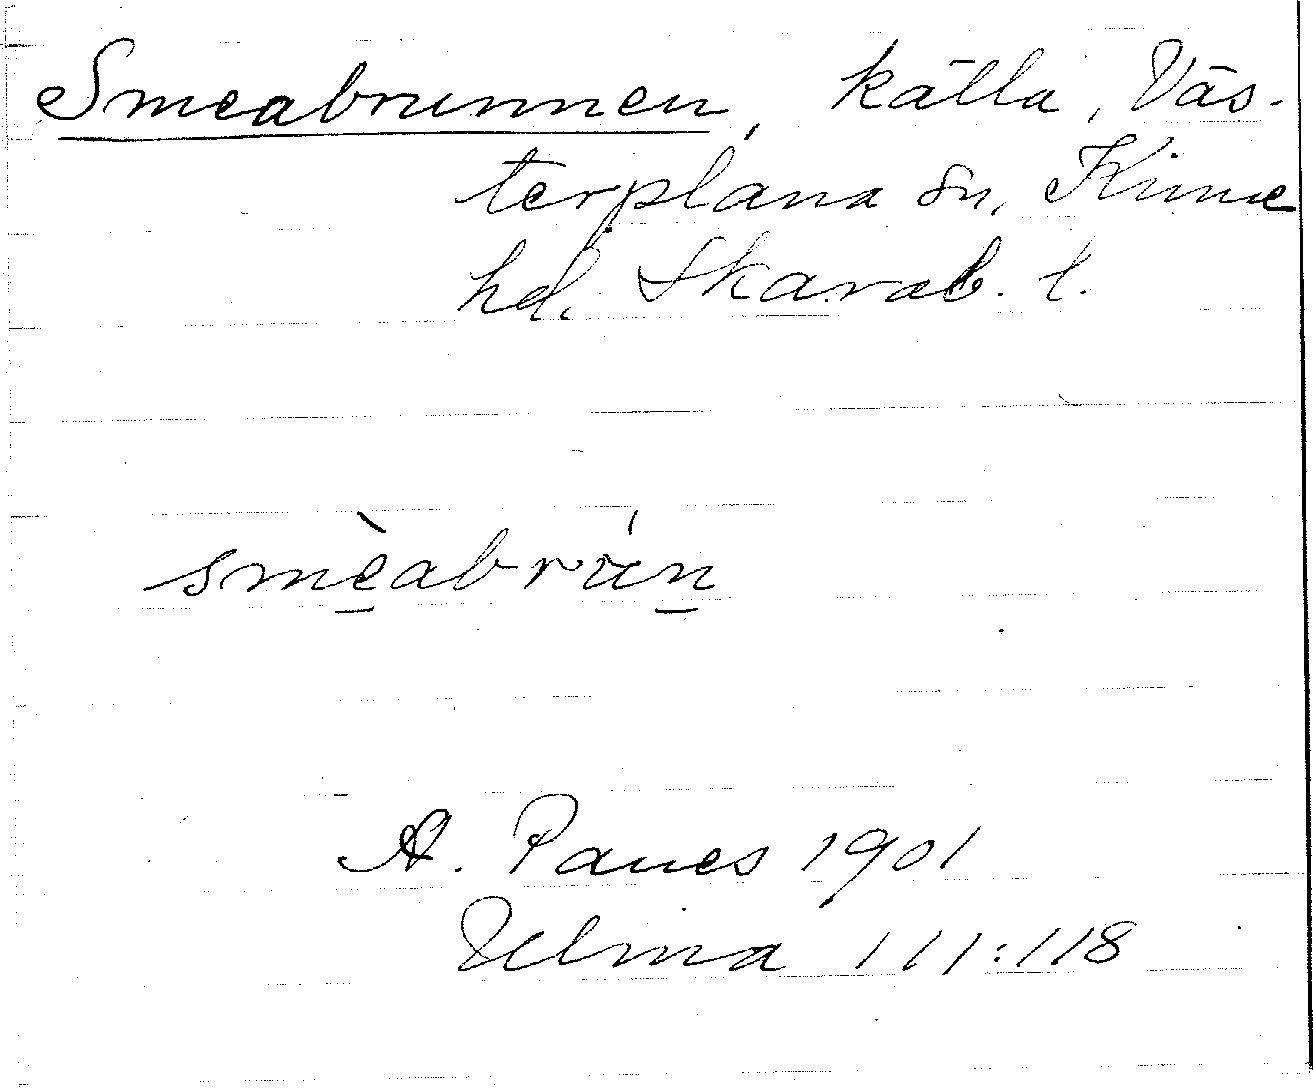 Smeabrunnen, källa, Väs-
terplana sn, Kinne
hd. Skarab. l.
smè̱abrún̲
A. Paues 1901
Ulma 111:118